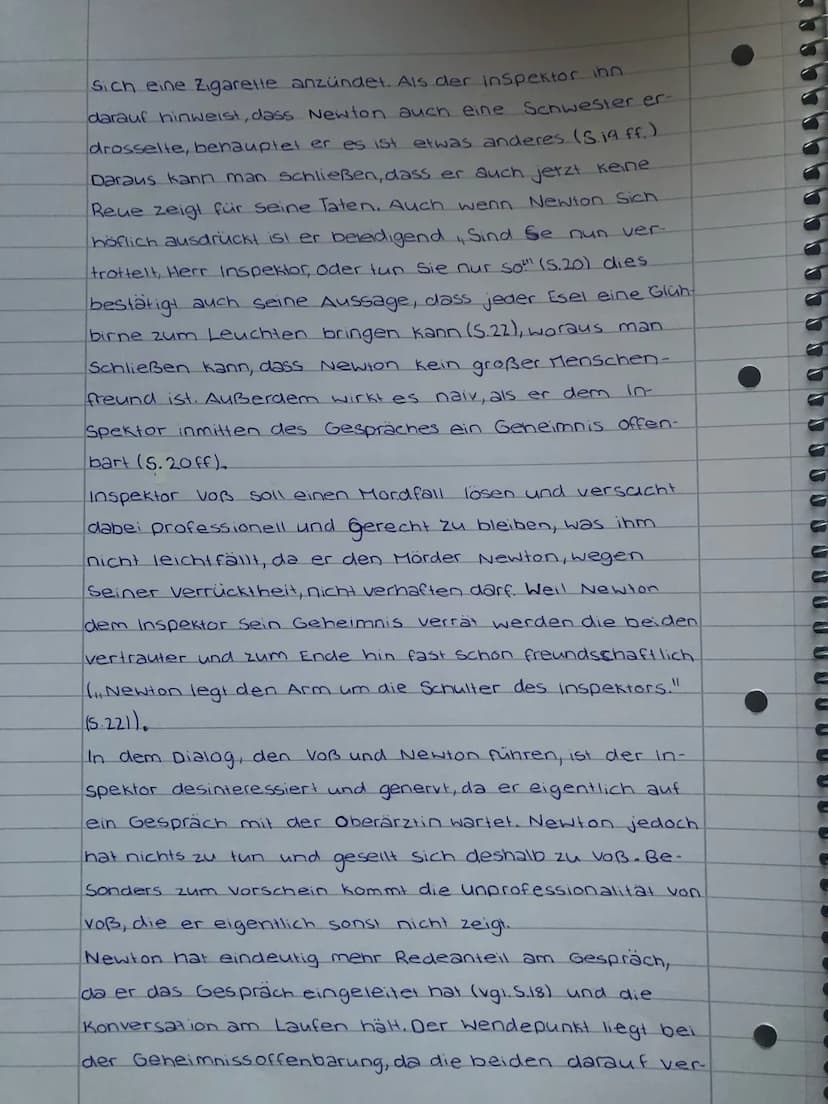 sich eine Zigarette anzündet. Als der Inspektor ihn
darauf hinweist, dass Newton auch eine Schwester er-
drosselte, behauptet er es ist etwas anderes (S.19 ff.)
Daraus kann man schließen, dass er auch jetzt keine
Reue zeigt für seine Taten. Auch wenn Newton sich
höflich ausdrückt ist er beleidigend „Sind Se nun ver-
trottelt, Herr Inspektor, oder tun Sie nur so?" (S.20) dies
bestätigt auch seine Aussage, dass jeder Esel eine Glüh-
birne zum Leuchten bringen kann (S.22), woraus man
schließen kann, dass Newton kein großer Menschen-
freund ist. Außerdem wirkt es naiv, als er dem In-
spektor inmitten des Gespräches ein Geheimnis offen-
bart (S. 20ff).
Inspektor Voß soll einen Mordfall lösen und versucht
dabei professionell und gerecht zu bleiben, was ihm
nicht leichtfällt, da er den Mörder Newton, wegen
seiner Verrücktheit, nicht verhaften darf. Weil Newton
dem Inspektor sein Geheimnis verrät werden die beiden
vertrauter und zum Ende hin fast schon freundschaftlich
(„Newton legt den Arm um die Schulter des Inspektors."
(S.22f)).
In dem Dialog, den Voß und Newton führen, ist der In-
spektor desinteressiert und genervt, da er eigentlich auf
ein Gespräch mit der Oberärztin wartet. Newton jedoch
hat nichts zu tun und gesellt sich deshalb zu Voß. Be-
sonders zum Vorschein kommt die Unprofessionalität von
Voß, die er eigentlich sonst nicht zeigt.
Newton hat eindeutig mehr Redeanteil am Gespräch,
da er das Gespräch eingeleitet hat (vgl. S.18) und die
Konversation am Laufen hält. Der Wendepunkt liegt bei
der Geheimnissoffenbarung, da die beiden darauf ver-